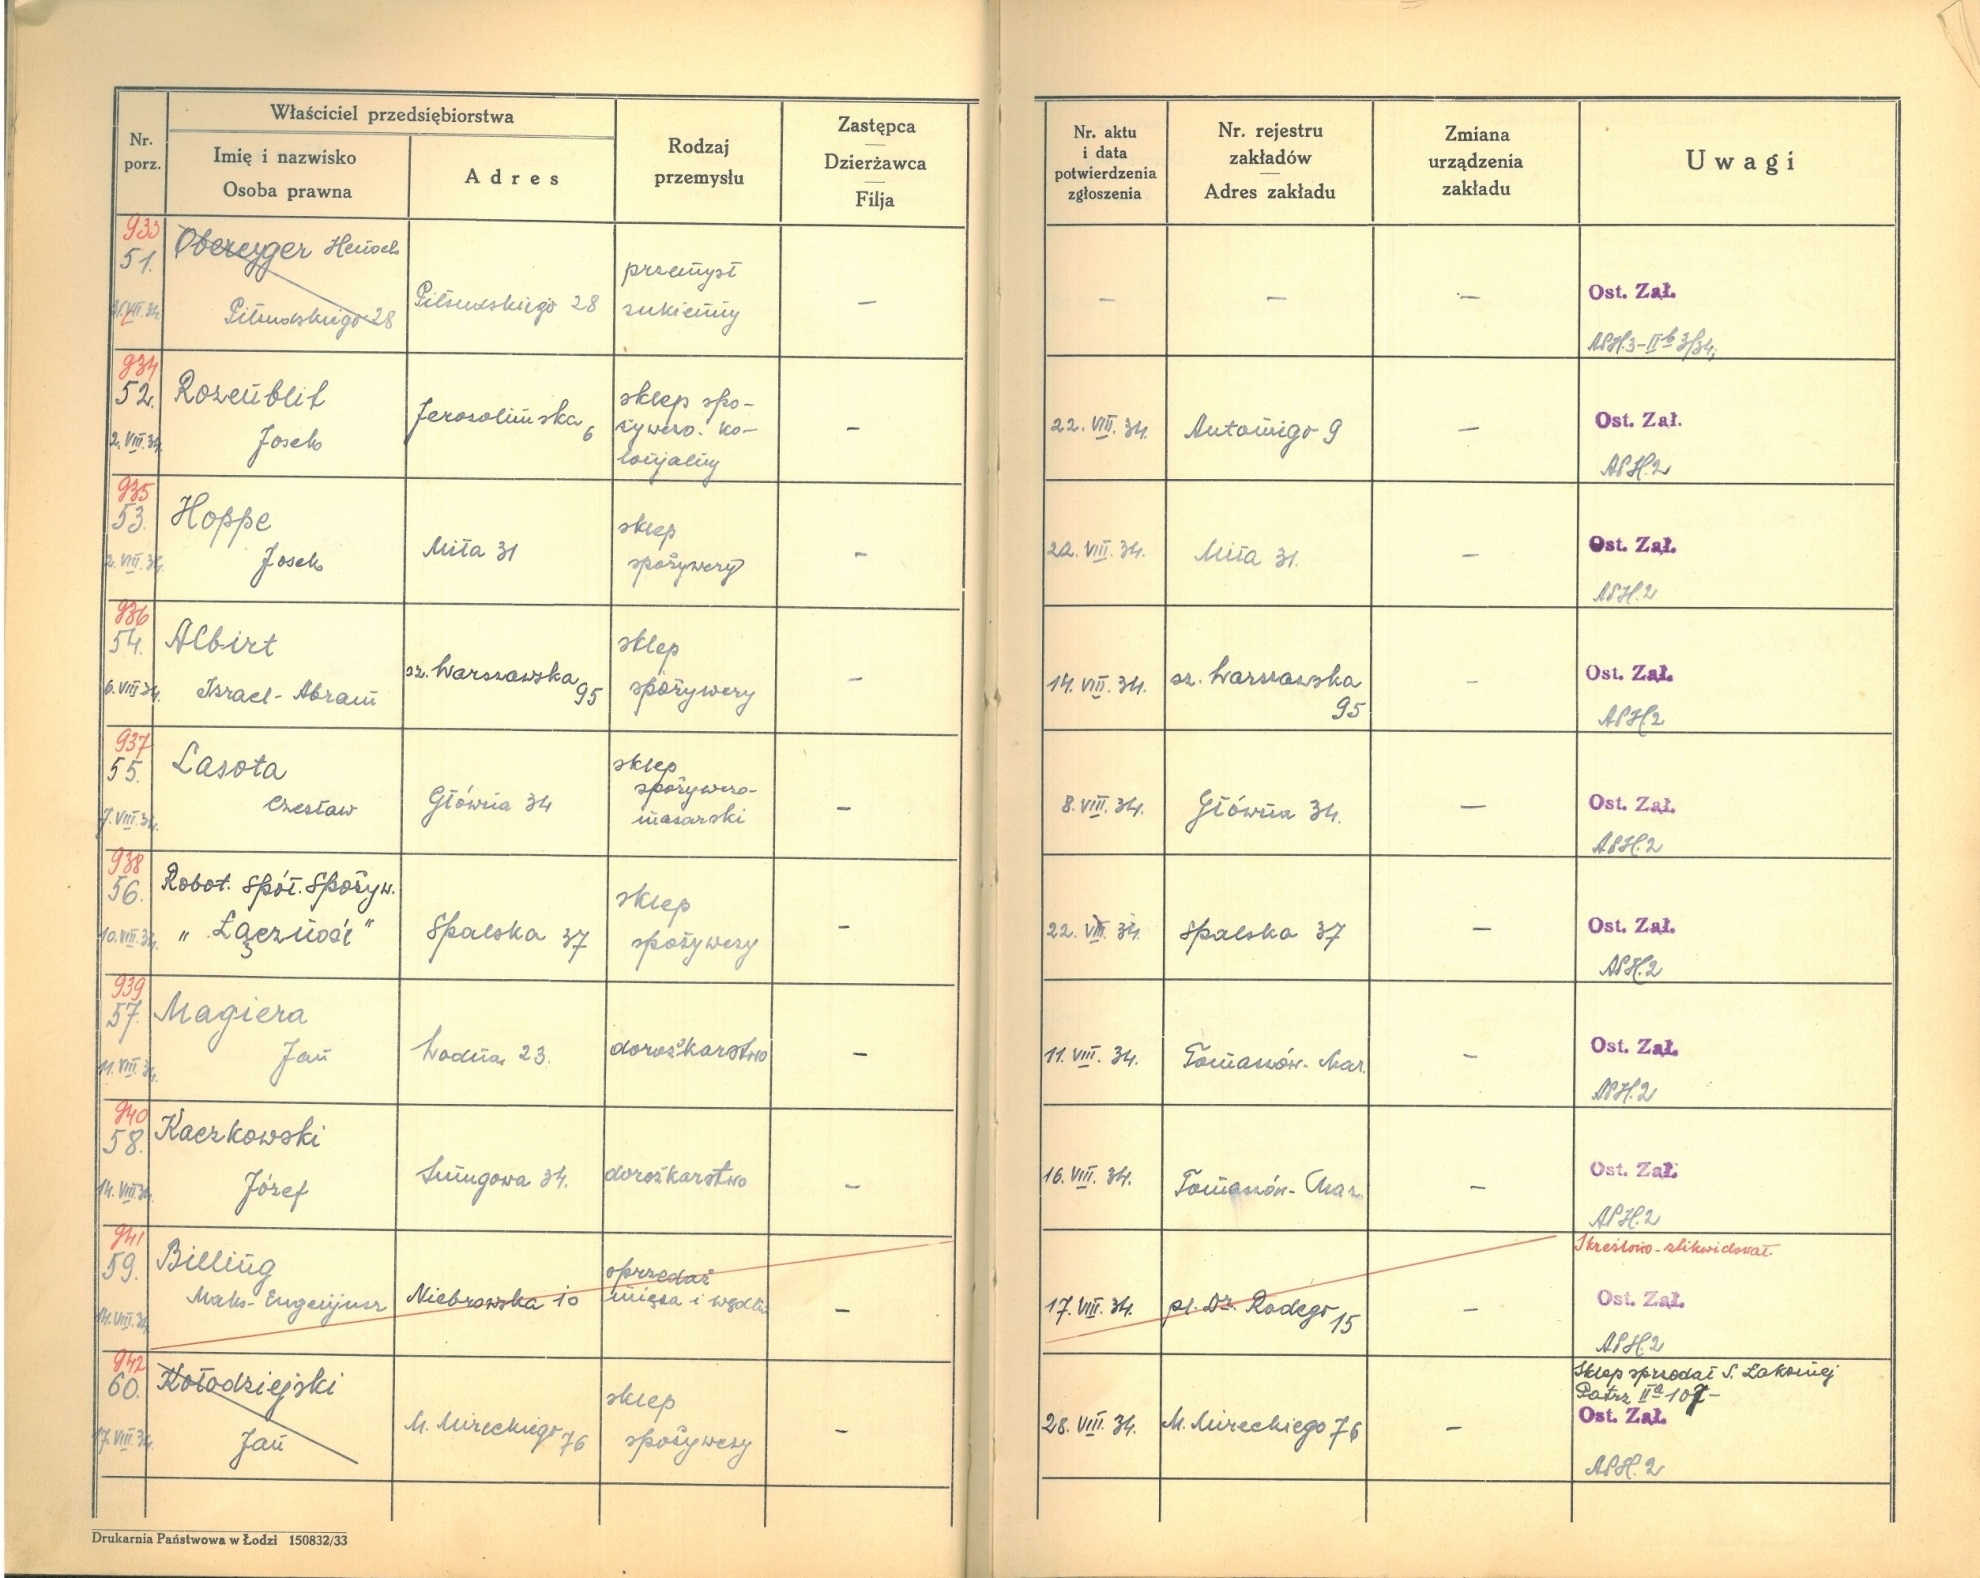 Nr.
porz.
Właściciel przedsiębiorstwa
Imię i nazwisko
Osoba prawna
Adres
Rodzaj
przemysłu
Zastępca
Dzierżawca
Filja
Nr. aktu
i data
potwierdzenia
zgłoszenia
Nr. rejestru
zakładów
Adres zakładu
Zmiana
urządzenia
zakładu
Uwagi
933
51.
VIII.34.
Henoch
Piłsudskiego 28
Piłsudskiego 28
przemysł
sukienny
–
–
–
–
Ost. Zał.
APH.3-IIb 3/34.
934
52.
2.VIII.34.
Rozenblit
Josek
Jerozolimska
6
sklep spo-
żywczo-ko-
lonjalny
–
22.VIII.34.
Antoniego 9
–
Ost. Zał.
APH.2
935
53.
2.VIII.34.
Hoppe
Josek
Miła 31
sklep
spożywczy
–
22.VIII.34.
Miła 31.
–
Ost. Zał.
APH.2
936
54.
6.VIII.34.
Albirt
Israel-Abram
sz. Warszawska
95
sklep
spożywczy
–
14.VIII.34.
sz. Warszawska
95
–
Ost. Zał.
APH.2
937
55.
7.VIII.34.
Lasota
Czesław
Główna 34
sklep
spożywczo-
masarski
–
8.VIII.34.
Główna 34.
–
Ost. Zał.
APH.2
938
56.
10.VIII.34.
Robot. Spół. Spożyw.
„Łączność"
Spalska 37
sklep
spożywczy
–
22.VIII.34.
Spalska 37
–
Ost. Zał.
APH.2
939
57.
11.VIII.34.
Magiera
Jan
Wodna 23.
dorożkarstwo
–
11.VIII.34.
Tomaszów-Maz.
–
Ost. Zał.
APH.2
940
58.
14.VIII.34.
Kaczkowski
Józef
34.
dorożkarstwo
–
16.VIII.34.
Tomaszów-Maz.
–
Ost. Zał.
APH.2
941
59.
14.VIII.34.
Billing
Maks-Eugenjusz
Niebrowska 10
sprzedaż
mięsa i wędlin
–
17.VIII.34.
pl. Dr. Rodego
15
–
Skreślono-zlikwidował.
Ost. Zał.
APH.2
942
60.
17.VIII.34.
Kołodziejski
Jan
M. Mireckiego
76
sklep
spożywczy
–
28.VIII.34.
M. Mireckiego 76
–
Sklep sprzedał S. Łakomej
Patrz IIa 107-
Ost. Zał.
APH.2
Drukarnia Państwowa w Łodzi 150832/33